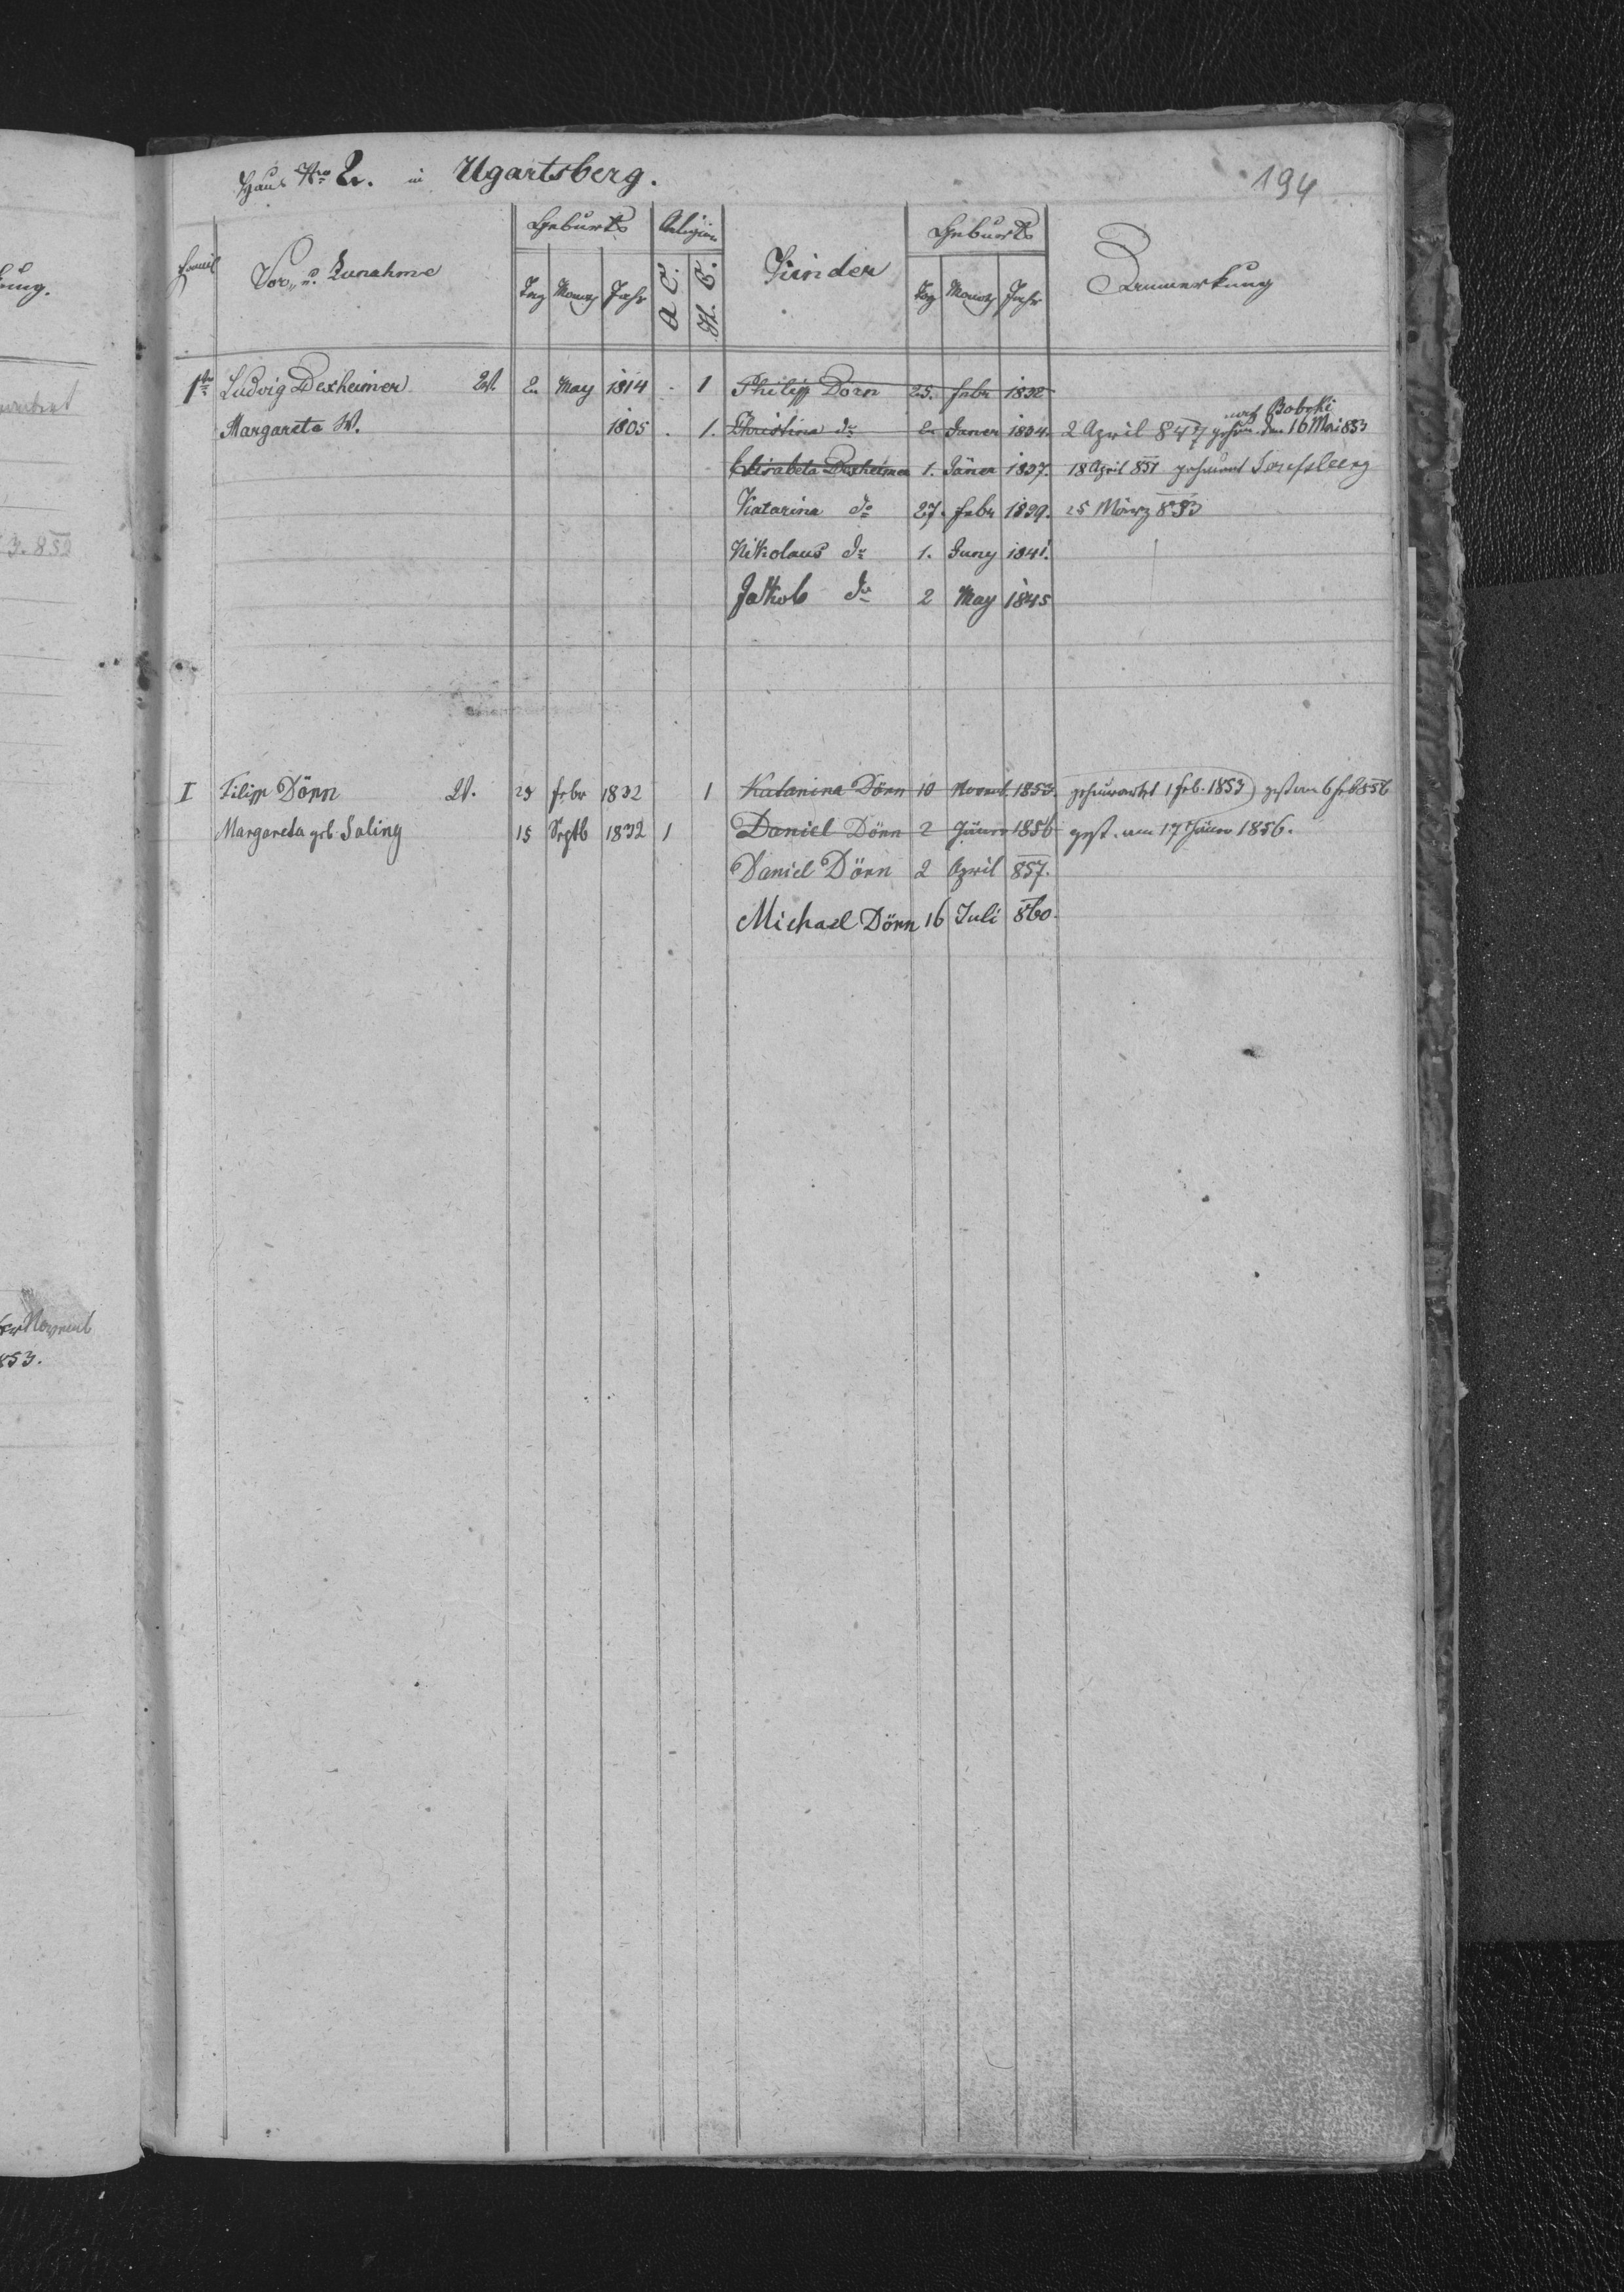 Haus Nro 2. in Ugartsberg.
194
Famil
Vor- u. Zunahme
Geburts
Tag Monat Jahr
Religion
A. C. H. C.
Kinder
Geburts
Tag Monat Jahr
Anmerkung
1te Ludwig Dexheimer W. 2. May 1814 . 1 Philipp Dörn 25. Febr 1832
nach Bobrki
Margareta W. 1805 . 1. Christina do 2. Janer 1834. 2 April 847 den 16 Mai 853
Elisabeta Dexheimer 1. Jäner 1837. 18 April 851 geheurat Josefsberg
Katarina do 27. Febr 1839. 25 März 853
Nikolaus do 1. Juny 1841.
Jakob do 2 May 1845
I Filipp Dörn W. 25 Febr 1832 1 Katarina Dörn 10 Novemb. 1853. geheurathet 1 Feb. 1853) gest am 6 Feb 856
Margareta geb. Saling 15 Septb 1832 1 Daniel Dörn 2 Jäner 1856 gest. am 17 Jäner 1856.
Daniel Dörn 2 April 857.
Michael Dörn 16 Juli 860.
3. 852
Novemb
853.